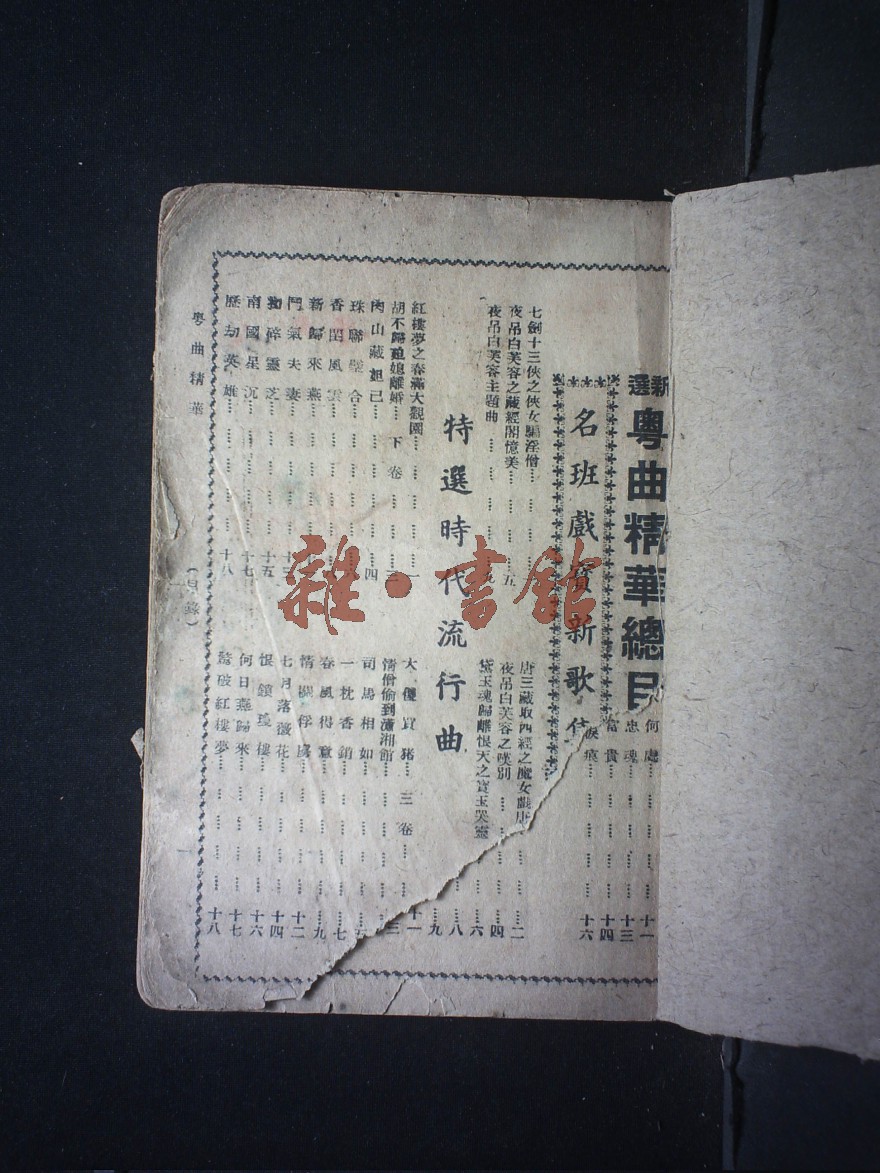 新選
粵曲精華總目
名班戲寶新歌集
七劍十三俠之俠女騙淫僧
夜吊白芙容之藏經閣憶美……五
夜吊白芙容主題曲……九
唐三藏取西經之魔女戲唐……二
夜吊白芙容之嘆別……四
黛玉魂歸離恨天之寶玉哭靈……六
特選時代流行曲
紅樓夢之春滿大觀園……一
胡不歸迫媳離婚……下卷……三
肉山藏妲己……四
珠聯璧合
香閨風雲
新歸來燕
鬥氣夫妻
摔碎靈芝……十五
南國星沉……十七
歷劫英雄……十八
大儍賣豬……三卷……十一
情僧偷到瀟湘館……三
司馬相如
一枕香銷……七
春風得意……九
情關俘虜……十二
七月落薇花……十四
恨鎖瓊樓……十六
何日燕歸來……十七
驚破紅樓夢……十八
何處……十一
忠魂……十三
富貴……十四
淚痕……十六
八
九
粵曲精華
(目錄)
一
雜·書館